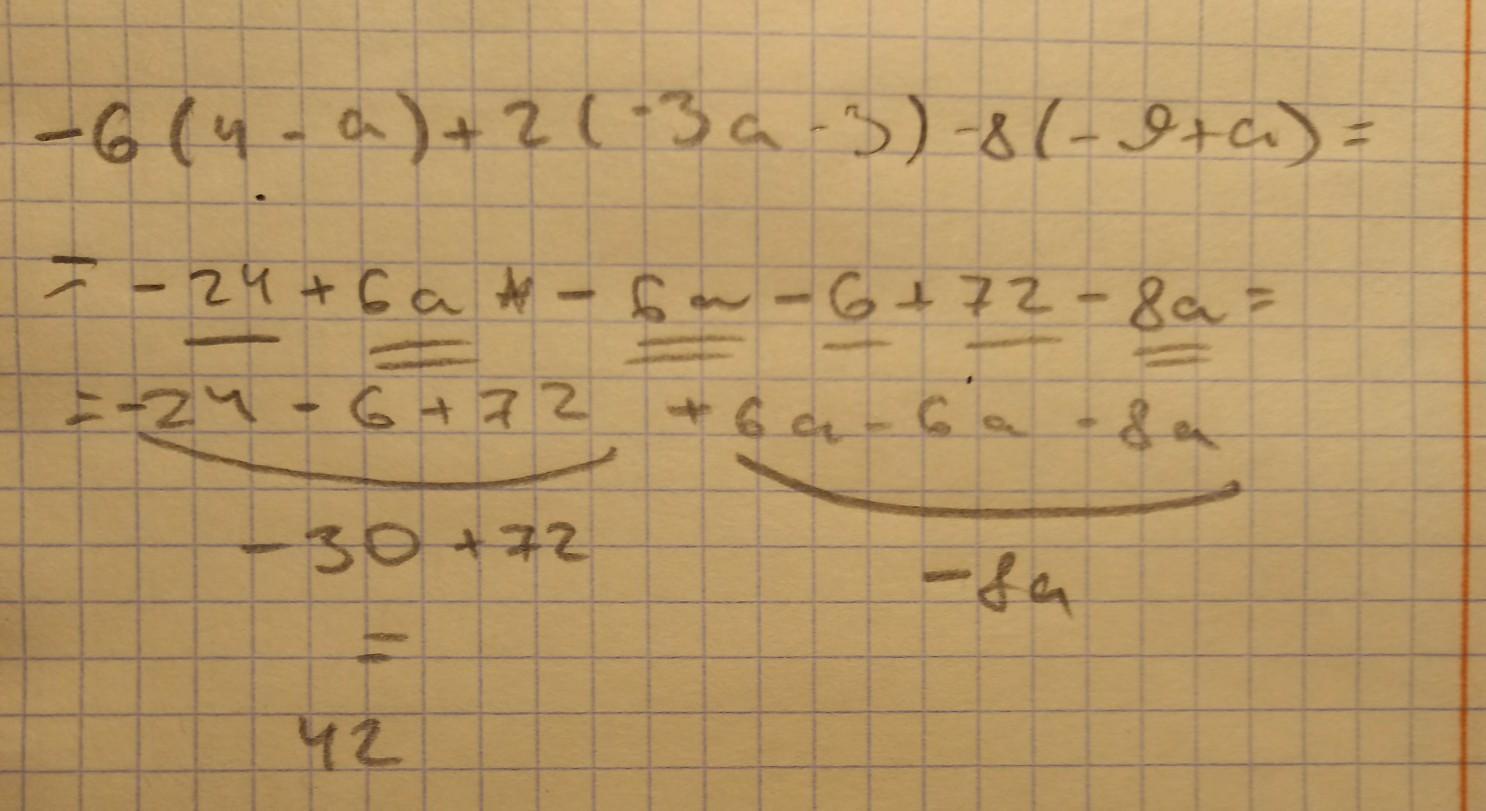 -6(4-a)+2(-3a-3)-8(-9+a)=
=-24+6a-6a-6+72-8a=
=-24-6+72 +6a-6a-8a
-30+72 -8a
=
42